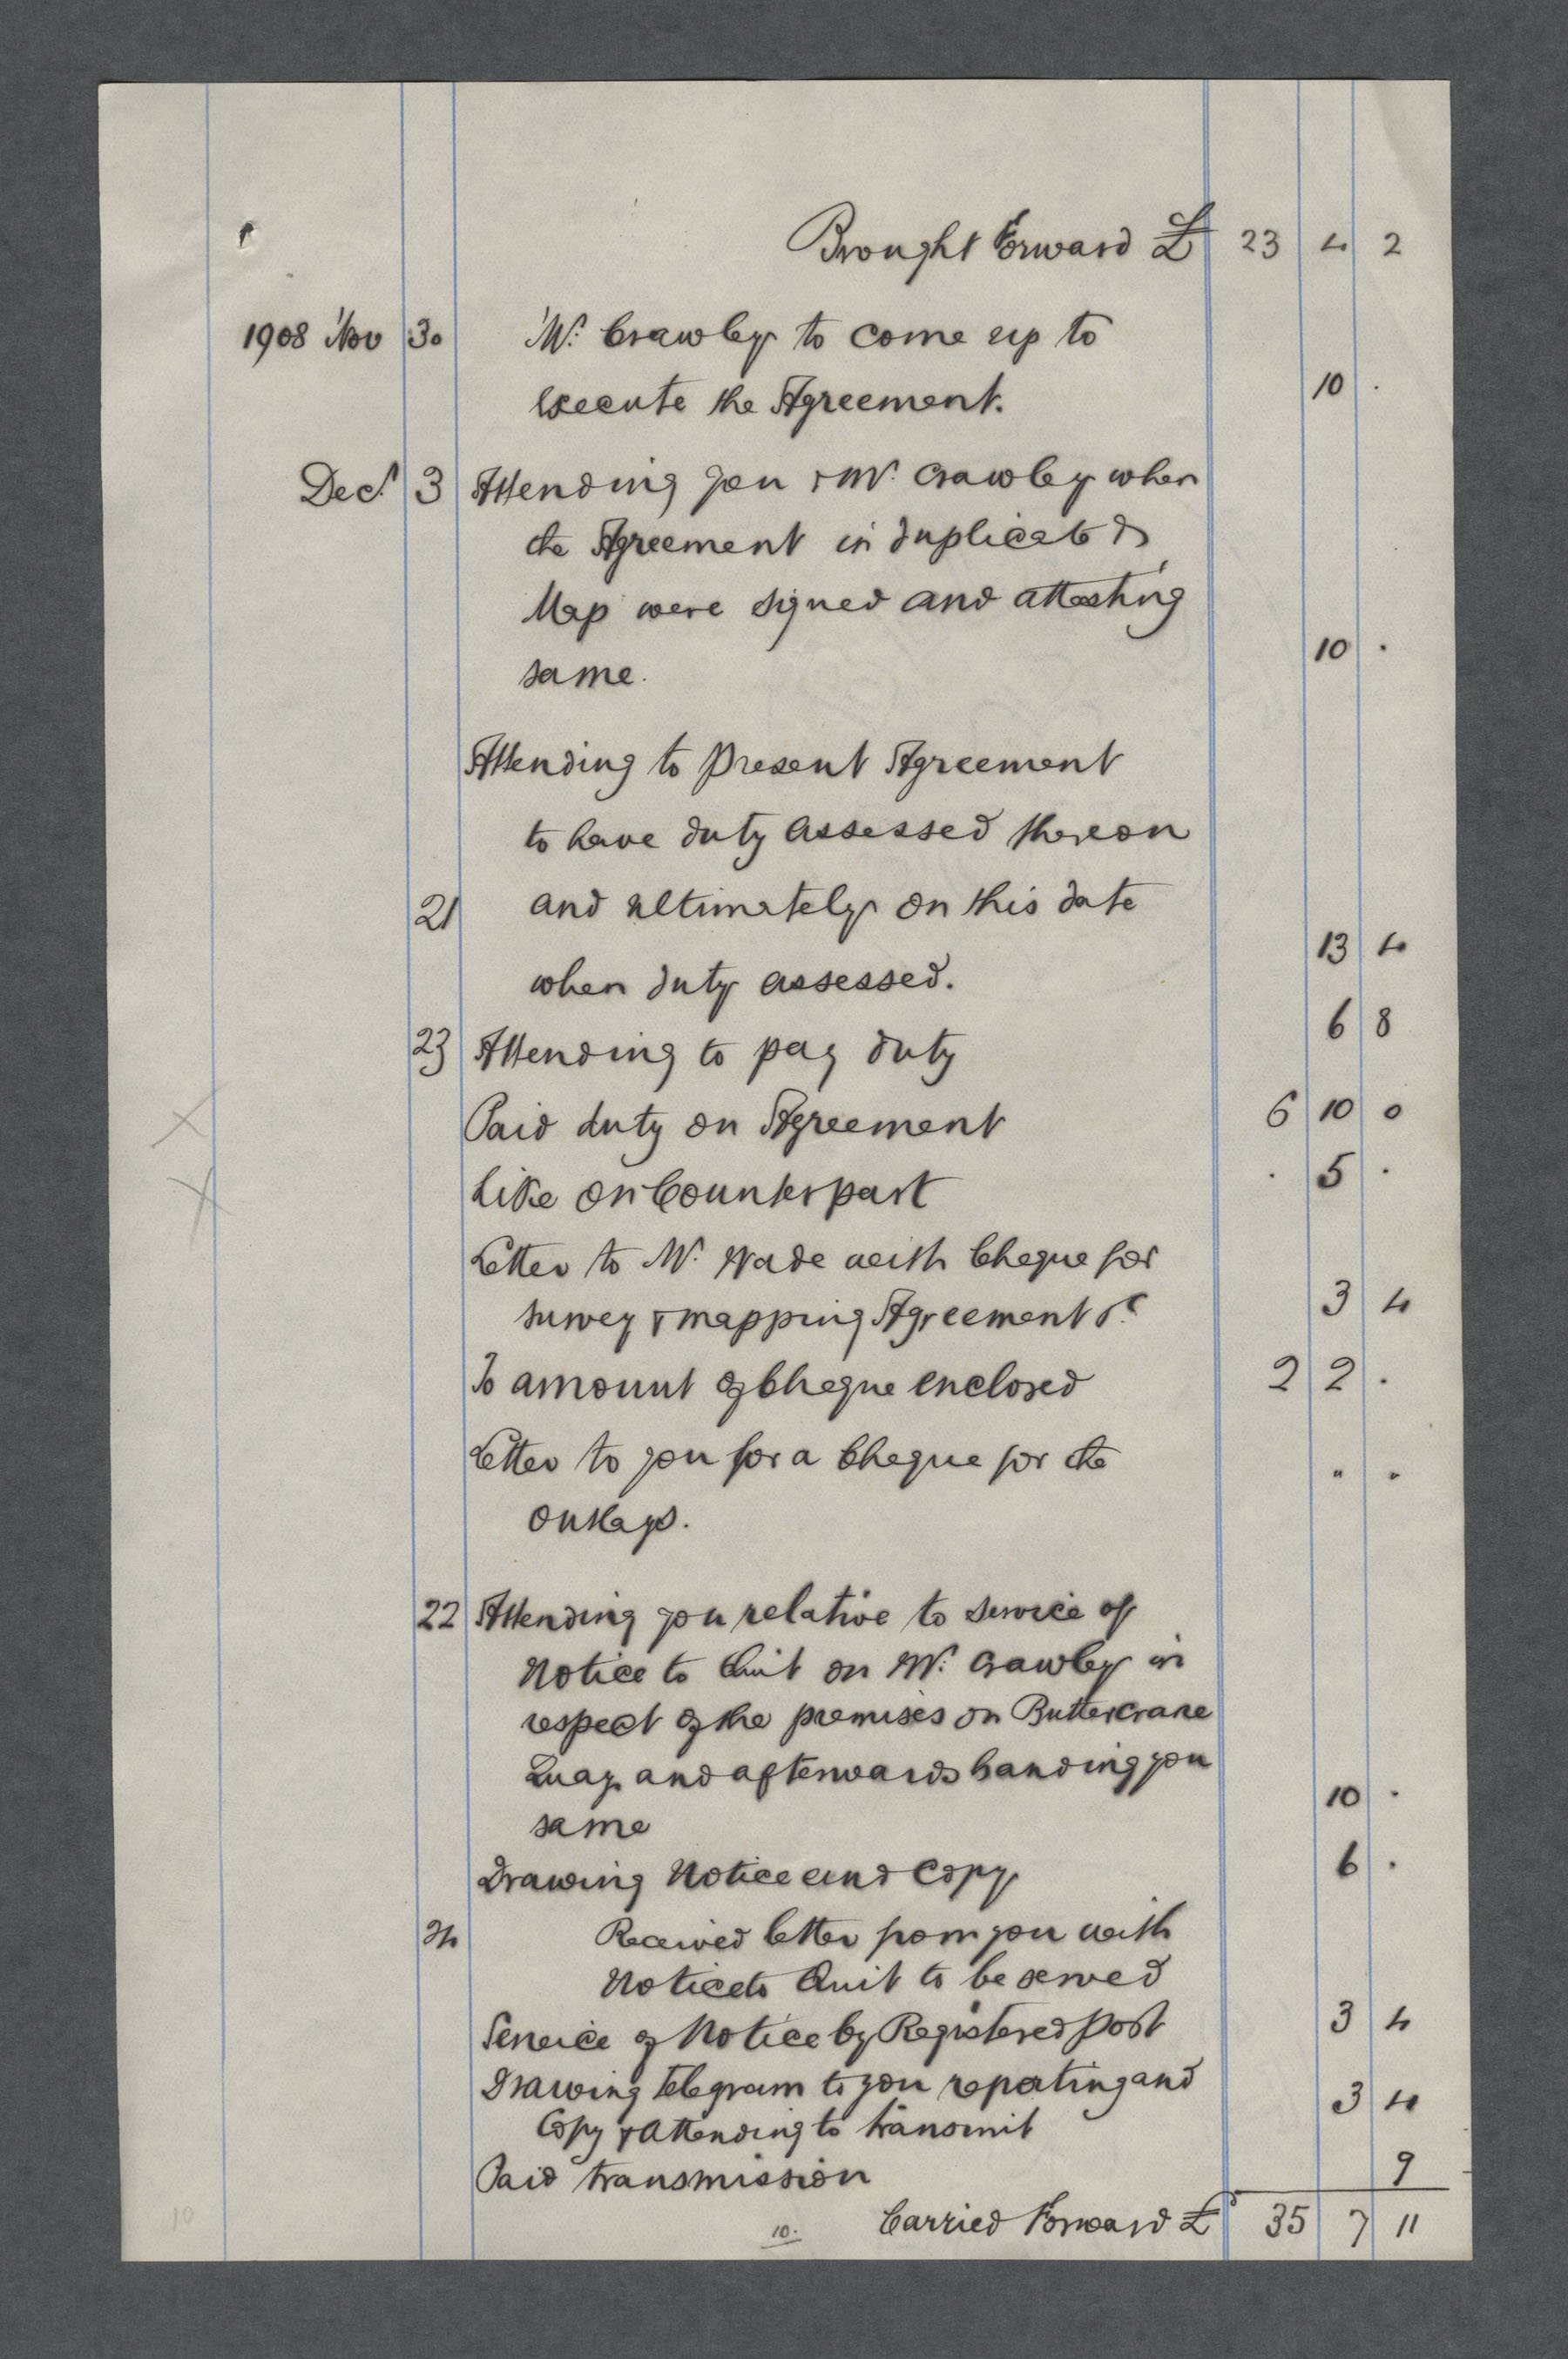 Brought Forward £ 23 4 2
1908 Nov 30 Mr. Crawley to come up to
execute the Agreement. 10 .
Decr. 3 Attending you & Mr. Crawley when
the Agreement in duplicate &
Map were signed and attesting
same. 10 .
Attending to present Agreement
to have duty assessed thereon
21 and ultimately on this date
when duty assessed. 13 4
23 Attending to pay duty 6 8
Paid duty on Agreement 6 10 0
Like on Counterpart . 5 .
Letter to Mr. Wade with Cheque for
survey & mapping Agreement &c 3 4
To amount of Cheque enclosed 2 2 .
Letter to you for a Cheque for the
outlays. " "
22 Attending you relative to service of
Notice to Quit on Mr. Crawley in
respect of the premises on Buttercrane
Quay and afterwards handing you
same 10 .
Drawing Notice and Copy 6 .
24 Received letter from you with
Notice to Quit to be served
Service of Notice by Registered post 3 4
Drawing telegram to you reporting and
Copy & Attending to transmit 3 4
Paid transmission 9
Carried Forward £ 35 7 11
10.
10